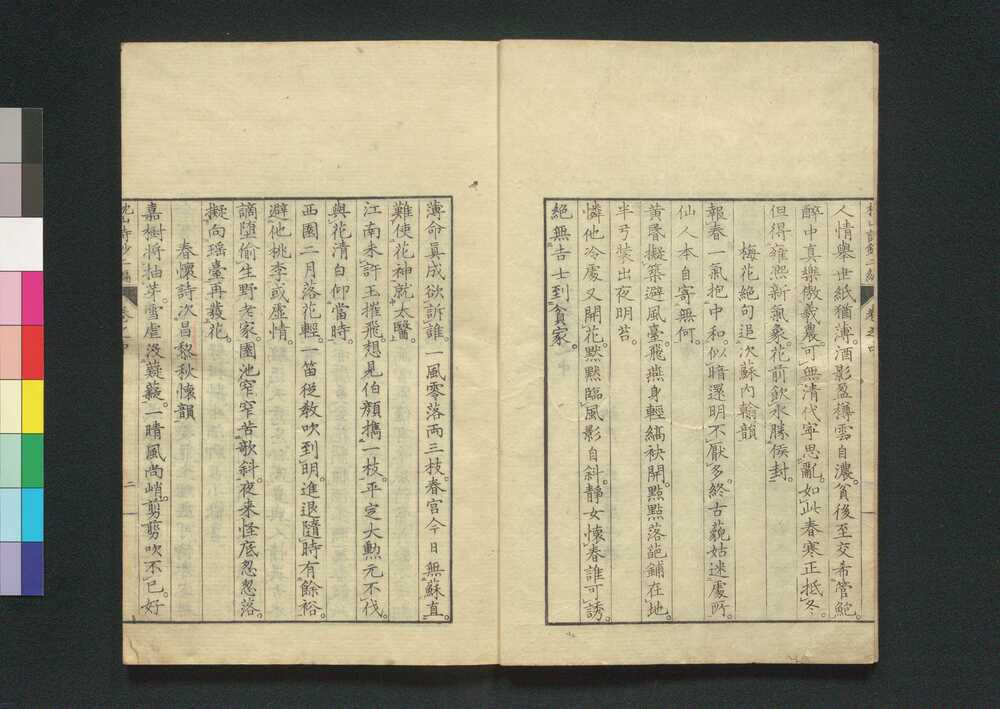 人情擧世紙猶薄。酒影盈樽雲自濃。貧後至交希管鮑。
醉中眞樂傲羲農。可無清代寧思亂。如此春寒正抵冬。
但得雍熙新氣象。花前飲水勝侯封。
梅花絶句追次蘇内翰韻
報春一氣抱中和。似暗還明不厭多。終古藐姑迷處所。
仙人本自寄無何。
黄昏擬築避風臺。飛燕身輕縞袂開。點點落葩鋪在地。
半弓裝出夜明苔。
憐他冷處又開花。默默臨風影自斜。靜女懷春誰可誘。
絶無吉士到貧家。
薄命眞成欲訴誰。一風零落兩三枝。春官今日無蘇直。
難使花神就太醫。
江南未許玉摧飛。想見伯顔擕一枝。平定大勲元不伐。
與花清白仰當時。
西園二月落花輕。一笛從敎吹到明。進退隨時有餘裕。
避他桃李或虚情。
謫墮偷生野老家。園池窄窄苦歌斜。夜來怪底忽忽落。
擬向瑶臺再發花。
春懷詩次昌黎秋懷韻
嘉樹将抽芽。雪虐沒蕤蕤。一晴風尚峭。剪剪吹不已。好
二